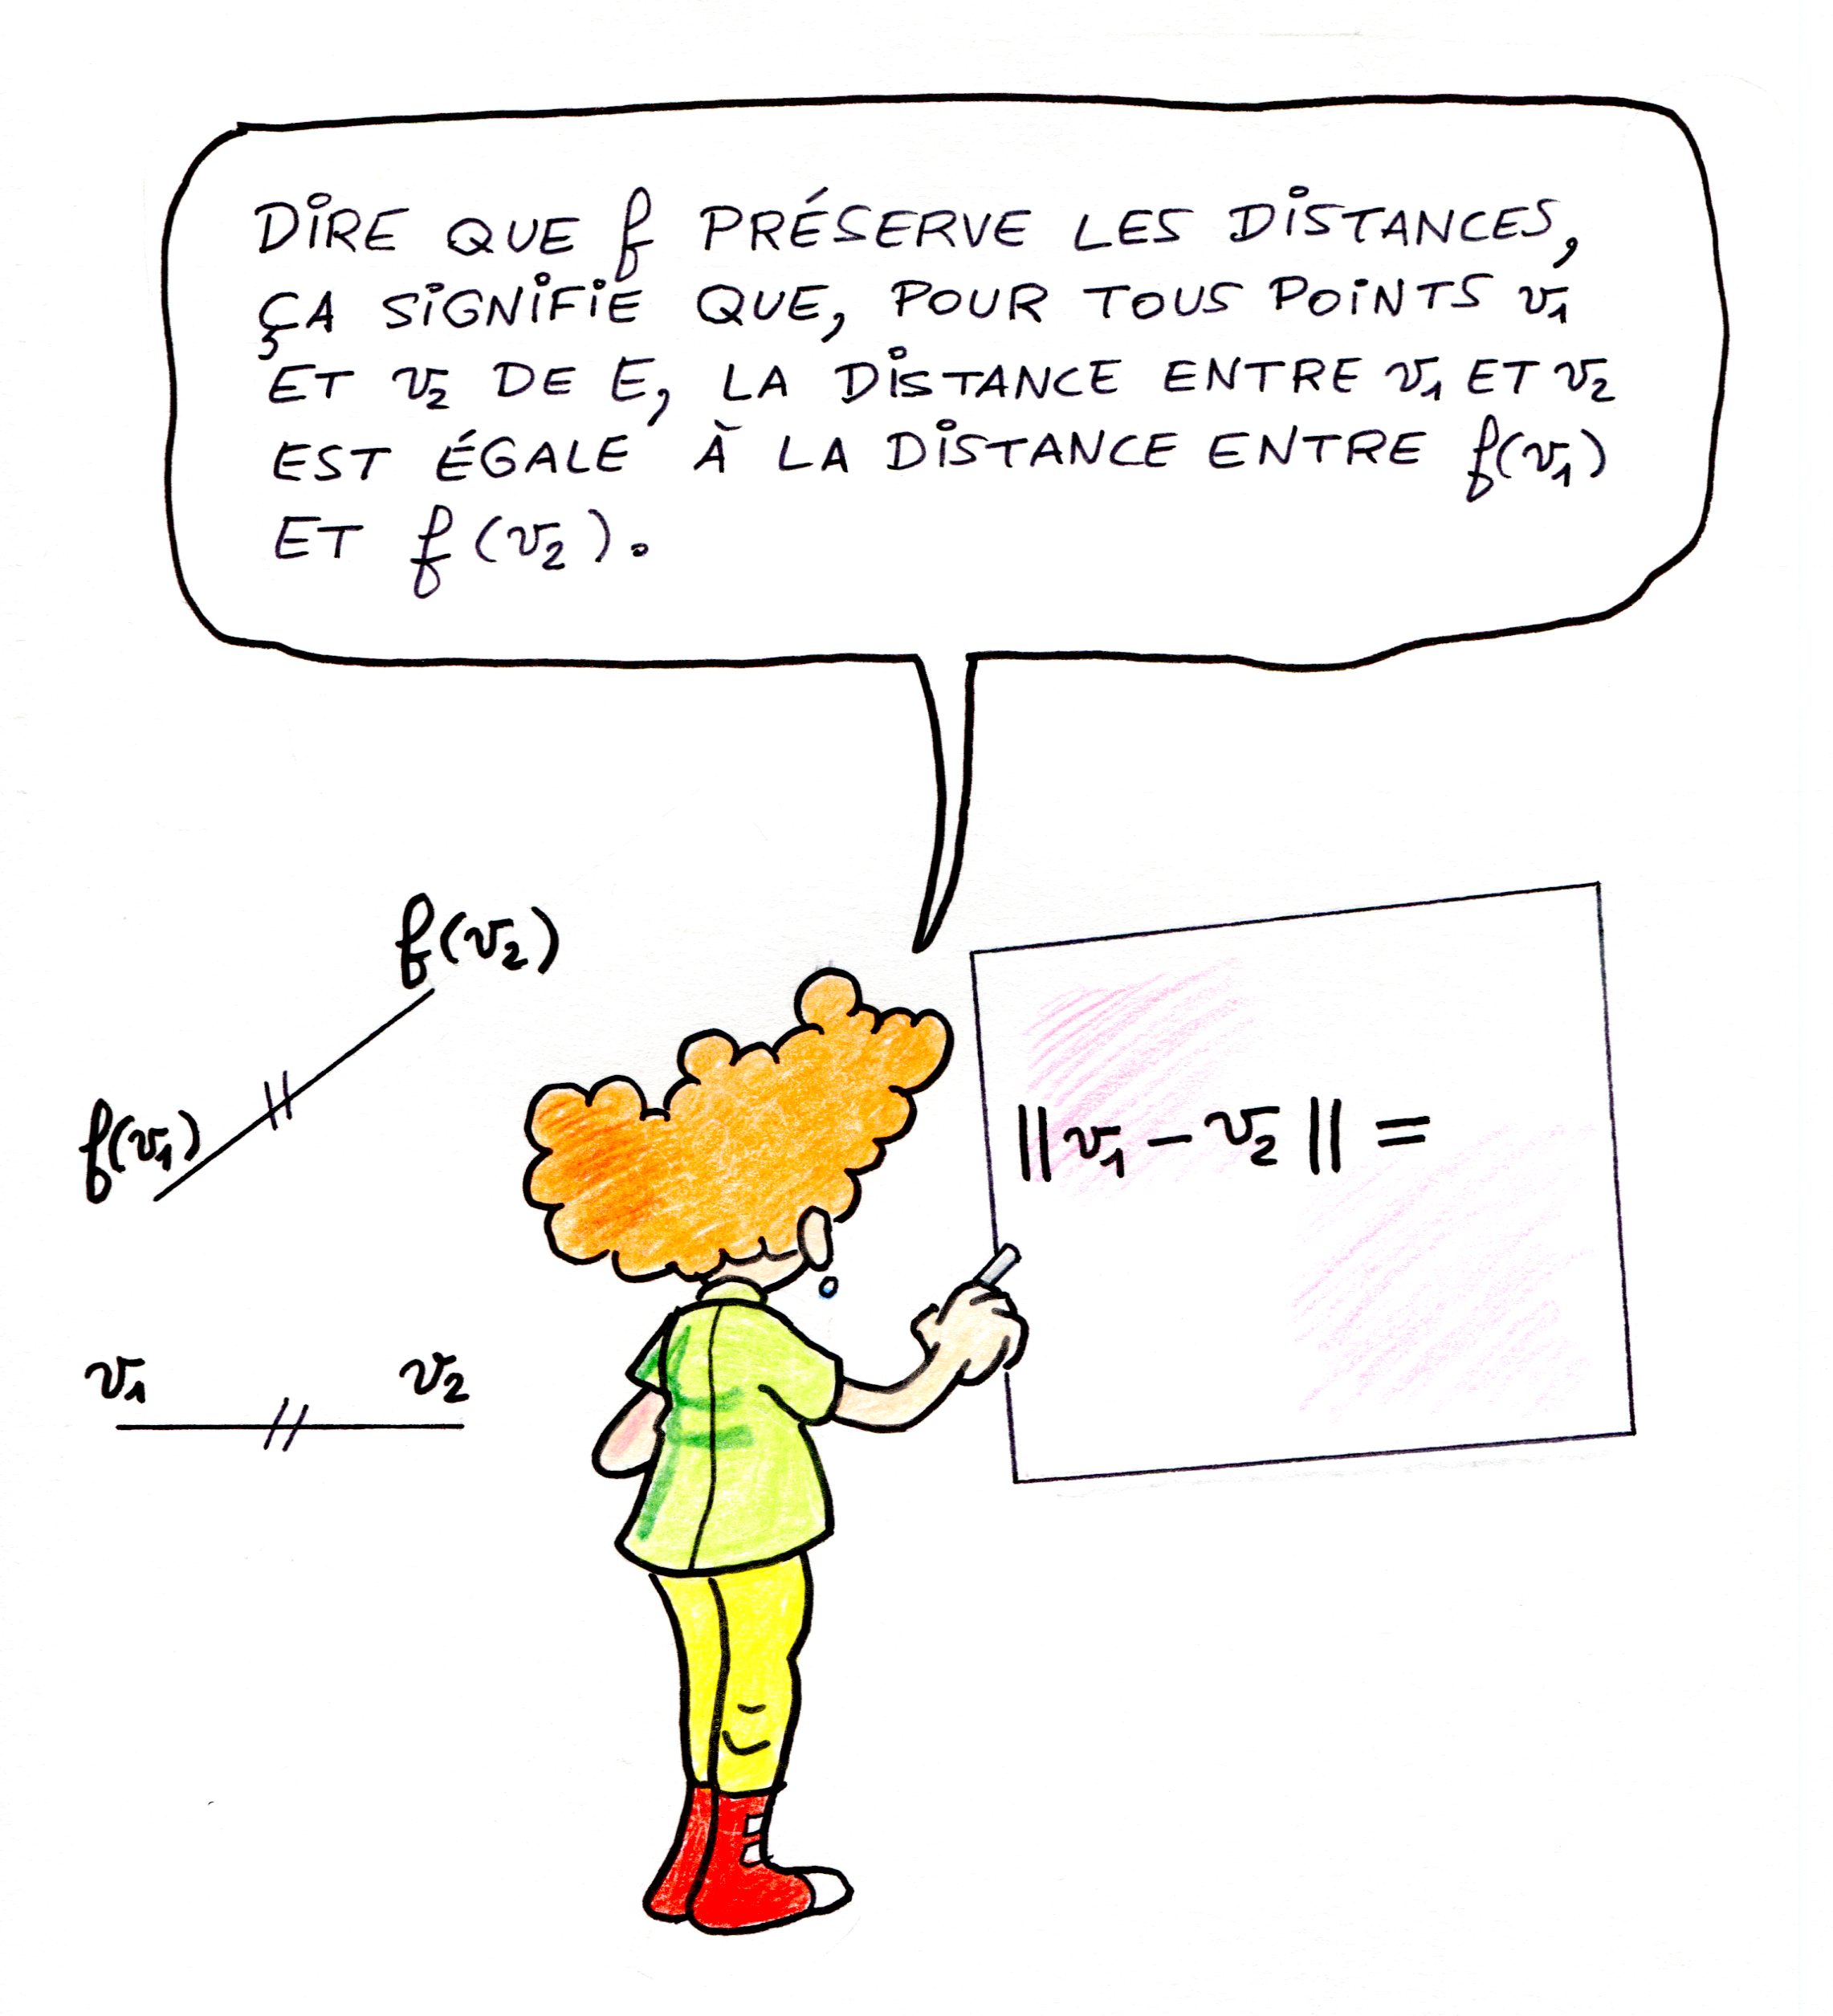 DIRE QUE f PRÉSERVE LES DISTANCES,
ÇA SIGNIFIE QUE, POUR TOUS POINTS v₁
ET v₂ DE E, LA DISTANCE ENTRE v₁ ET v₂
EST ÉGALE À LA DISTANCE ENTRE f(v₁)
ET f(v₂).
f(v₂)
f(v₁)
‖v₁ - v₂‖ =
v₁ v₂